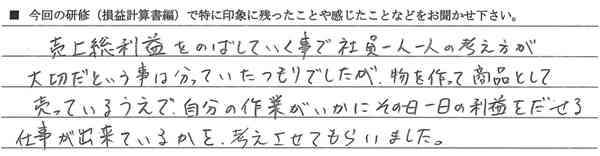 ■ 今回の研修（損益計算書編）で特に印象に残ったことや感じたことなどをお聞かせ下さい。
売上総利益をのばしていく事で社員一人一人の考え方が
大切だという事は分っていたつもりでしたが、物を作って商品として
売っているうえで、自分の作業がいかにその日一日の利益をだせる
仕事が出来ているかを、考えさせてもらいました。